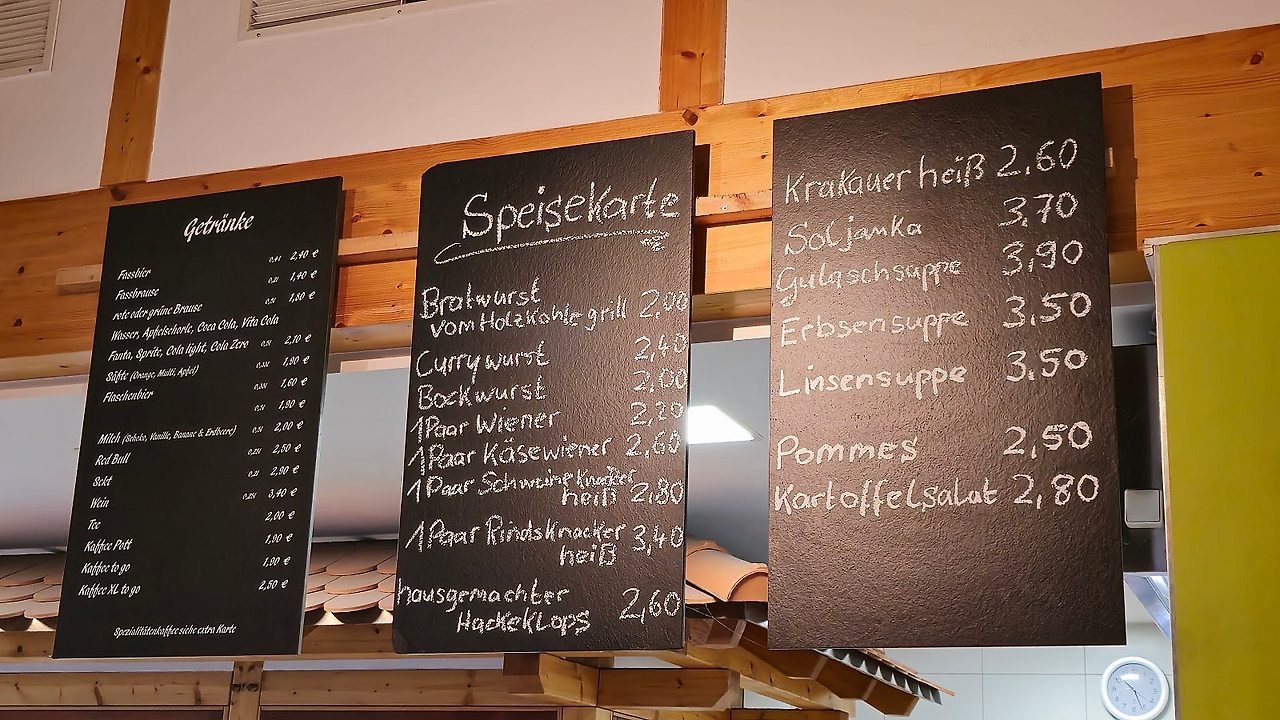 Getränke
Fassbier 2,40 €
Fassbrause 1,40 €
rote oder grüne Brause 1,80 €
Wasser, Apfelschorle, Coca Cola, Vita Cola
Fanta, Sprite, Cola light, Cola Zero 2,10 €
Säfte (Orange, Multi, Apfel) 1,90 €
Flaschenbier 1,60 €
1,90 €
Milch (Schoko, Vanille, Banane & Erdbeere) 2,00 €
Red Bull 2,50 €
Sekt 2,90 €
Wein 3,40 €
Tee 2,00 €
Kaffee Pott 1,90 €
Kaffee to go 1,90 €
Kaffee XL to go 2,50 €
Spezialitätenkaffee siehe extra Karte
Speisekarte
Bratwurst
vom Holzkohlegrill 2,00
Currywurst 2,40
Bockwurst 2,00
1 Paar Wiener 2,20
1 Paar Käsewiener 2,60
1 Paar Schweineknacker
heiß 2,80
1 Paar Rindsknacker 3,40
heiß
hausgemachter
Hackeklops 2,60
Krakauer heiß 2,60
Soljanka 3,70
Gulaschsuppe 3,90
Erbsensuppe 3,50
Linsensuppe 3,50
Pommes 2,50
Kartoffelsalat 2,80